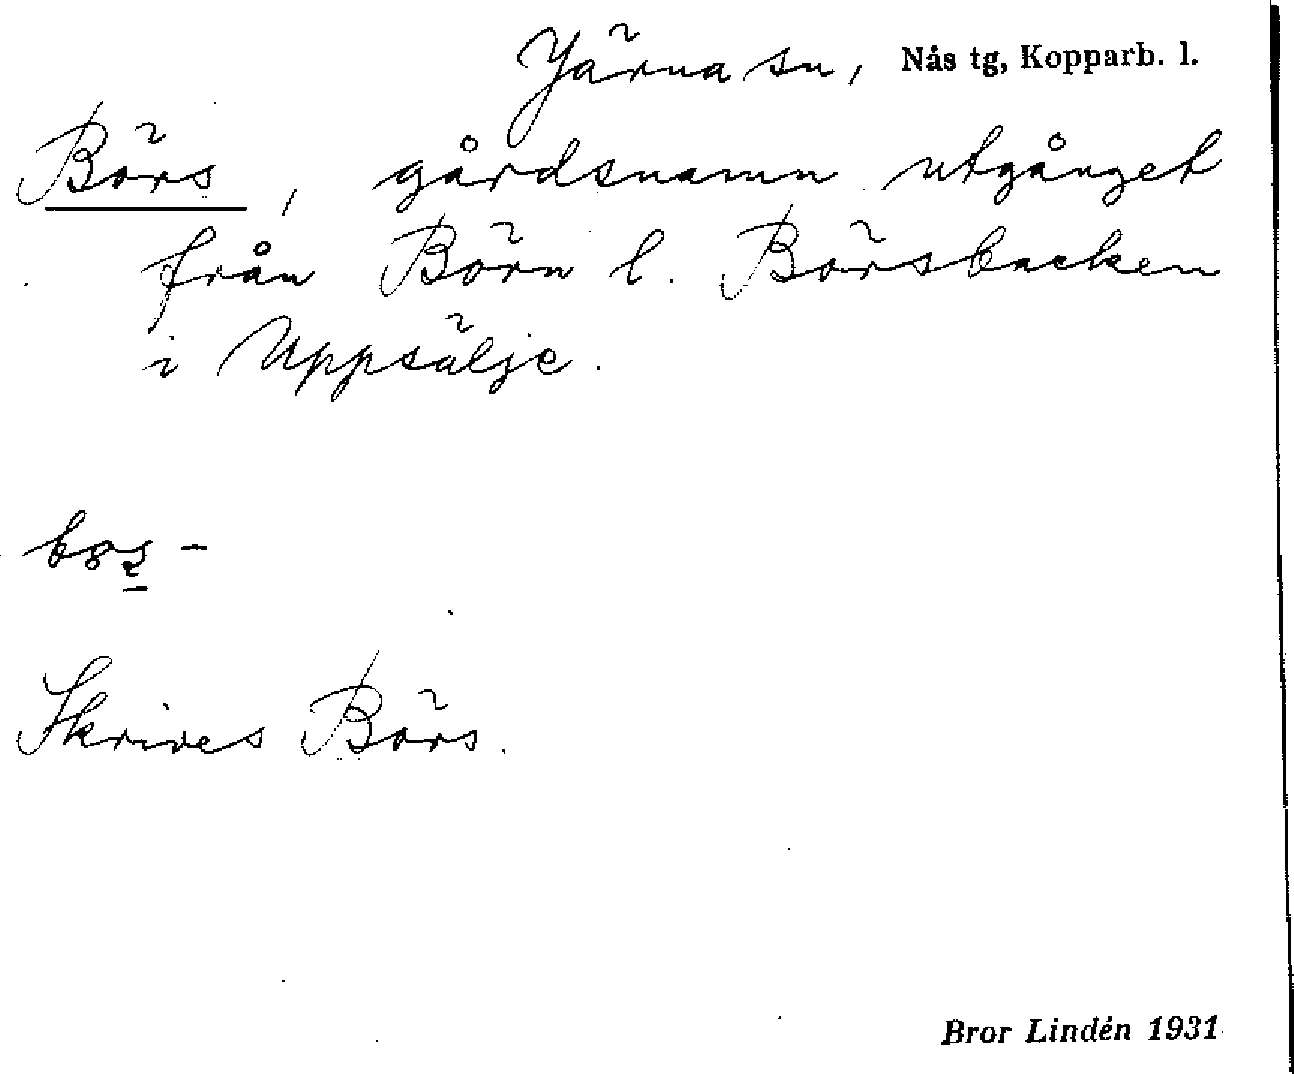 Järna sn, Nås tg, Kopparb. l.
Börs, gårdsnamn utgånget
från Börn l. Börsbacken
i Uppsälje.
Skrives Börs.
Bror Lindén 1931